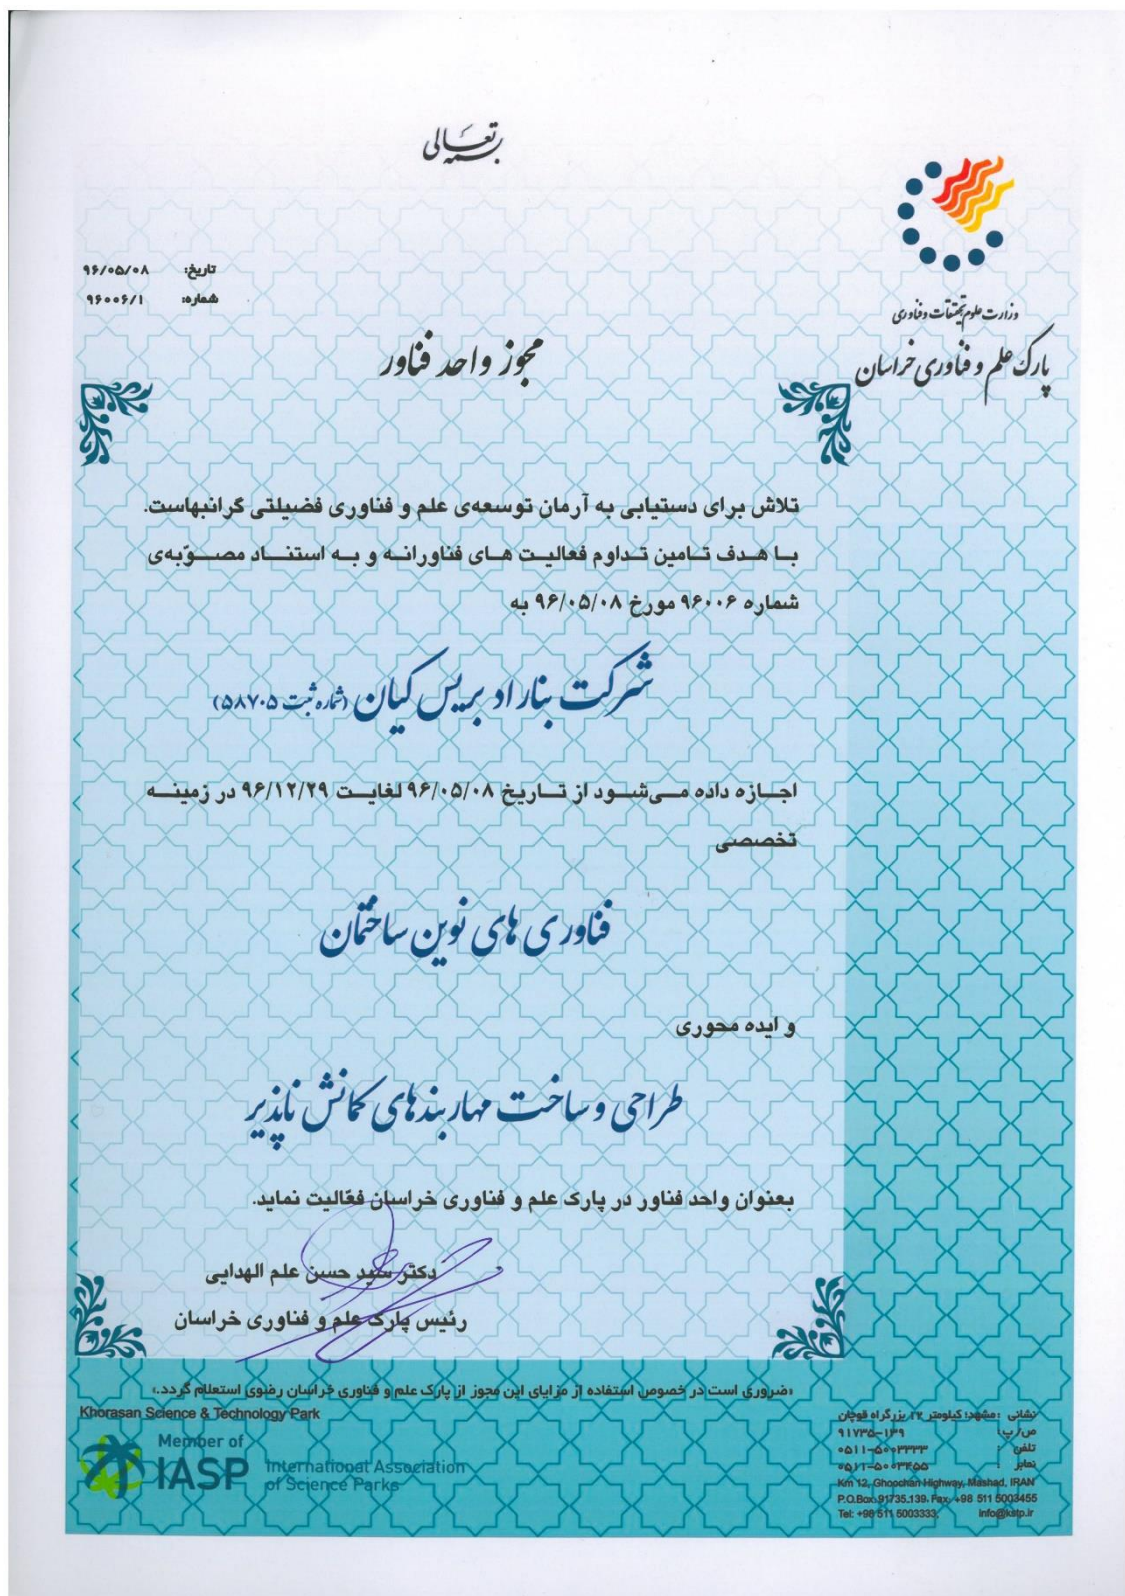 بسمه تعالی
وزارت علوم تحقیقات و فناوری
پارک علم و فناوری خراسان
تاریخ: ۹۶/۰۵/۰۸
شماره: ۹۶۰۰۶/۱
مجوز واحد فناور
تلاش برای دستیابی به آرمان توسعه‌ی علم و فناوری فضیلتی گرانبهاست.
با هدف تامین تداوم فعالیت های فناورانه و به استناد مصوّبه‌ی
شماره ۹۶۰۰۶ مورخ ۹۶/۰۵/۰۸ به
شرکت بناراد بریس کیان (شماره ثبت ۵۸۷۰۵)
اجازه داده می‌شود از تاریخ ۹۶/۰۵/۰۸ لغایت ۹۶/۱۲/۲۹ در زمینه
تخصصی
فناوری های نوین ساختمان
و ایده محوری
طراحی و ساخت مهاربندهای کمانش ناپذیر
بعنوان واحد فناور در پارک علم و فناوری خراسان فعّالیت نماید.
دکتر سید حسن علم الهدایی
رئیس پارک علم و فناوری خراسان
«ضروری است در خصوص استفاده از مزایای این مجوز از پارک علم و فناوری خراسان رضوی استعلام گردد.»
Khorasan Science & Technology Park
Member of
IASP
International Association
of Science Parks
نشانی : مشهد: کیلومتر ۱۲ بزرگراه قوچان
ص/پ: ۹۱۷۳۵-۱۳۹
تلفن : ۰۵۱۱-۵۰۰۳۳۳۳
نمابر : ۰۵۱۱-۵۰۰۳۴۵۵
Km 12, Ghoochan Highway, Mashad, IRAN
P.O.Box: 91735.139. Fax: +98 511 5003455
Tel: +98 511 5003333, info@kstp.ir